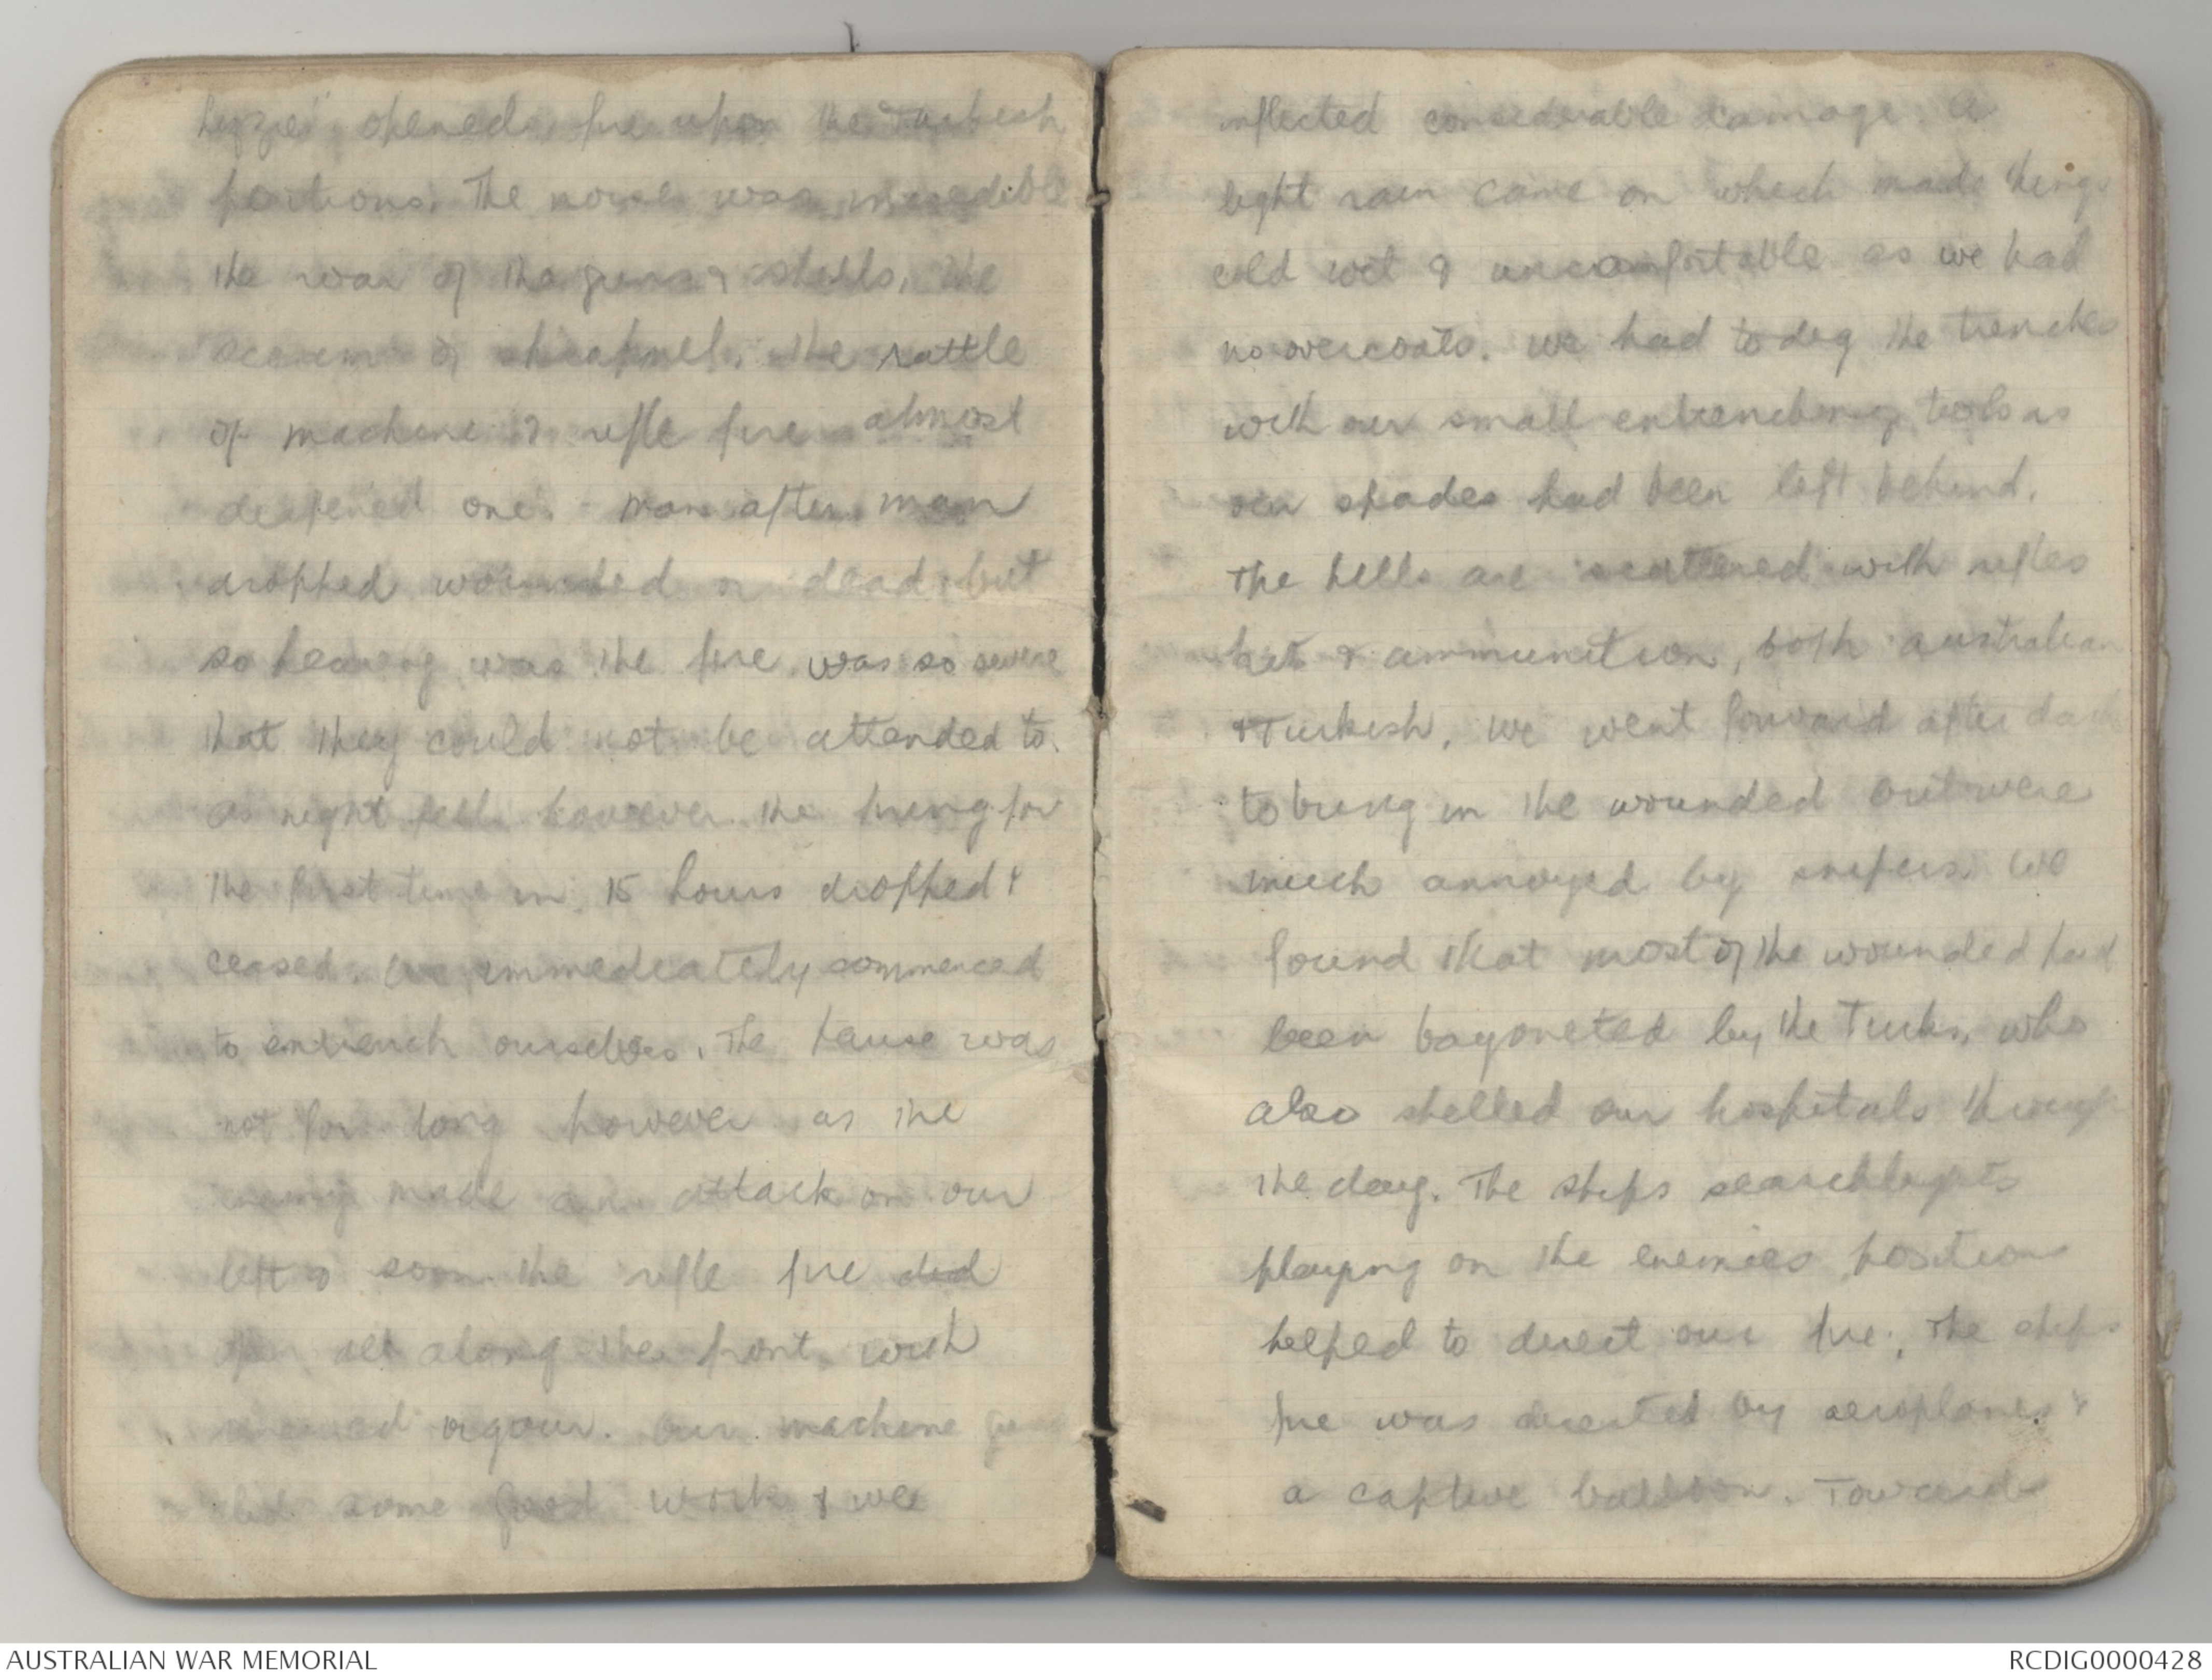 opened fire upon the Turkish
positions. The noise was incredible
the roar of the guns & shells, the
scream of shrapnel, the rattle
of machine & rifle fire almost
deafened one. Man after man
dropped wounded or dead but
so was the fire was so severe
that they could not be attended to.
as night fell however the firing for
the first time in 15 hours dropped &
ceased. We immediately commenced
to entrench ourselves. The pause was
not for long however as the
enemy made an attack on our
left & soon the rifle fire did
all along the front with
vigour. Our machine
did some good work & we
inflicted considerable damage. A
light rain came on which made things
cold wet & uncomfortable as we had
no overcoats. We had to dig the trenches
with our small entrenching tools as
our spades had been left behind.
The hills are scattered with rifles
& ammunition, both Australian
& Turkish. We went forward after dark
to bring in the wounded but were
much annoyed by snipers. We
found that most of the wounded had
been bayoneted by the Turks, who
also shelled our hospitals through
the day. The ships searchlights
playing on the enemies positions
helped to direct our fire, The ships
fire was directed by aeroplanes &
a captive balloon. Towards
AUSTRALIAN WAR MEMORIAL
RCDIG0000428